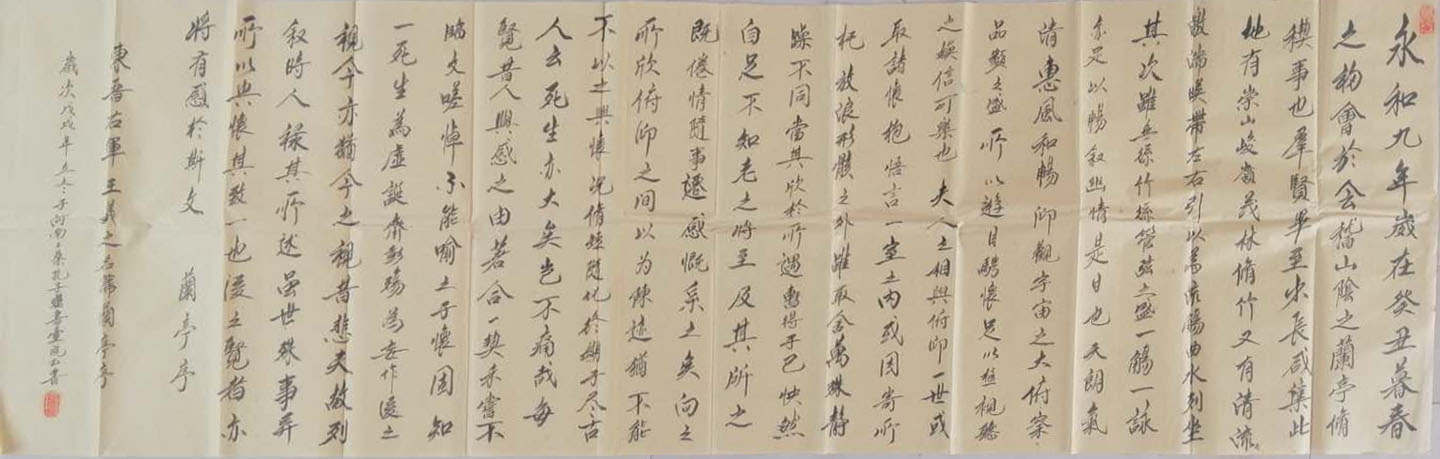 永和九年歲在癸丑暮春
之初會於會稽山陰之蘭亭脩
稧事也羣賢畢至少長咸集此
地有崇山峻嶺茂林脩竹又有清流
激湍暎帶左右引以為流觴曲水列坐
其次雖無絲竹絲管弦之盛一觴一詠
亦足以暢叙幽情是日也天朗氣
清惠風和暢仰觀宇宙之大俯察
品類之盛所以遊目騁懷足以極視聽
之娛信可樂也夫人之相與俯仰一世或
取諸懷抱悟言一室之內或因寄所
托放浪形骸之外雖取舍萬殊靜
躁不同當其欣於所遇暫得于己怏然
自足不知老之將至及其所之
既倦情隨事遷感慨系之矣向之
所欣俯仰之間以為陳迹猶不能
不以之興懷況脩短隨化於期于尽古
人云死生亦大矣豈不痛哉每
覽昔人興感之由若合一契未嘗不
臨文嗟悼不能喻之于懷固知
一死生為虛誕齊彭殤為妄作後之
視今亦猶今之視昔悲夫故列
敘時人録其所述雖世殊事異
所以興懷其致一也後之覽者亦
將有感於斯文 蘭亭序
東晉右軍王羲之名篇蘭亭序
歲次戊戌年 于河南 書